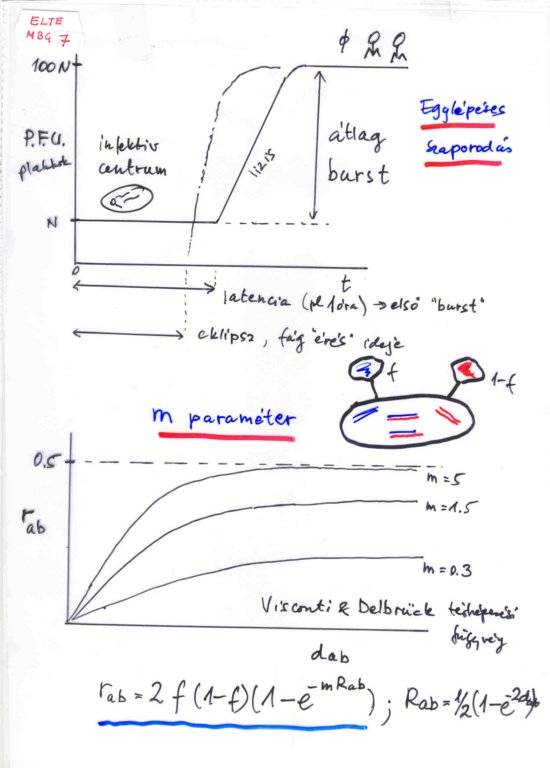 ELTE
MBG 7
100N
φ
P.F.U.
plakkok
infektív
centrum
lízis
átlag
burst
Egylépéses
szaporodás
N
0
t
latencia (pl 1óra) → első "burst"
eklipsz, fág "érés" ideje
f
1-f
m paraméter
0.5
m=5
r_ab
m=1.5
m=0.3
Visconti & Delbrück térképezési
függvény
dab
r_ab = 2 f (1-f) (1-e^-mRab) ; Rab = 1/2 (1-e^-2dab)